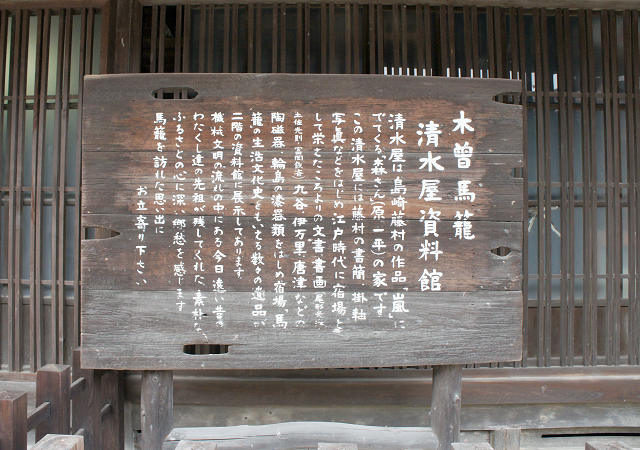 木曽馬籠
清水屋資料館
清水屋は島崎藤村の作品「嵐」に
でてくる“森さん”(原一平)の家です
この清水屋には藤村の書簡、掛軸
写真などをはじめ、江戸時代に「宿場」と
して栄えたころよりの文書、書画
九谷、伊万里、唐津などの
陶磁器、輪島の漆器類をはじめ宿場、馬
籠の生活文化史をもいえる数々の遺品が
二階の資料館に展示してあります
機械文明の流れの中にある今日、遠い昔の
わたくし達の先祖が残してくれた、素朴な、
ふるさとの心に深い郷愁を感じます
馬籠を訪れた思い出に
お立寄り下さい